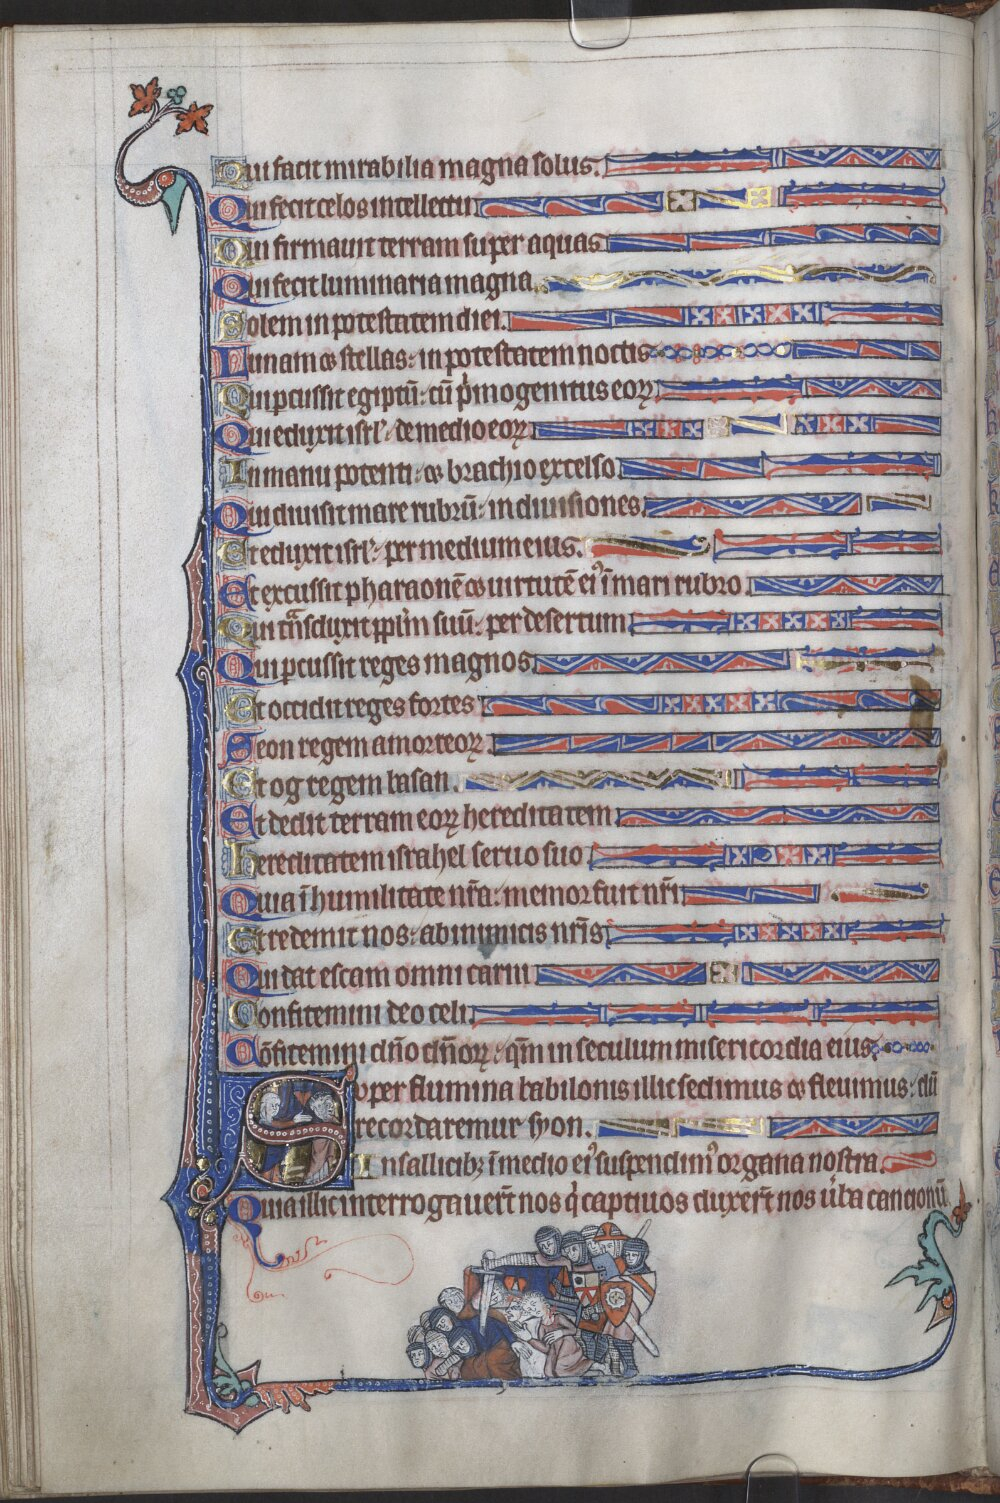 Qui facit mirabilia magna solus.
Qui fecit celos intellectu
Qui firmauit terram super aquas
Qui fecit luminaria magna.
Solem in potestatem diei.
Lunam ⁊ stellas: in potestatem noctis
Qui pcussit egiptū: cū p̍mogenitus eoꝝ
Qui eduxit isrl̕: de medio eoꝝ
In manu potenti: ⁊ brachio excelso
Qui diuisit mare rubrū: in diuisiones.
Et eduxit isrl̕: per medium eius.
Et excussit pharaonē ⁊ uirtutē ei᾽ ī mari rubro
Qui tͣnsduxit ppl̄m suū: per desertum
Qui pcussit reges magnos
Et occidit reges fortes
Seon regem amorreoꝝ
Et og regem basan.
Et dedit terram eoꝝ hereditatem
hereditatem israhel seruo suo
Quia ī humilitate nr̄a: memor fuit nr̄i
Et redemit nos: ab inimicis nr̄is
Qui dat escam omni carni
Confitemini deo celi.
Cōfitemini dn̄o dn̄oꝝ: qm̄ in seculum misericordia eius
Super flumina babilonis illic sedimus ⁊ fleuimus: dū
recordaremur syon.
In sallicibꝫ ī medio ei᾽ suspendim᾽ organa nostra.
Quia illic interrogauer̄t nos q̍ captiuos duxer̄t nos u̍ba cancionū